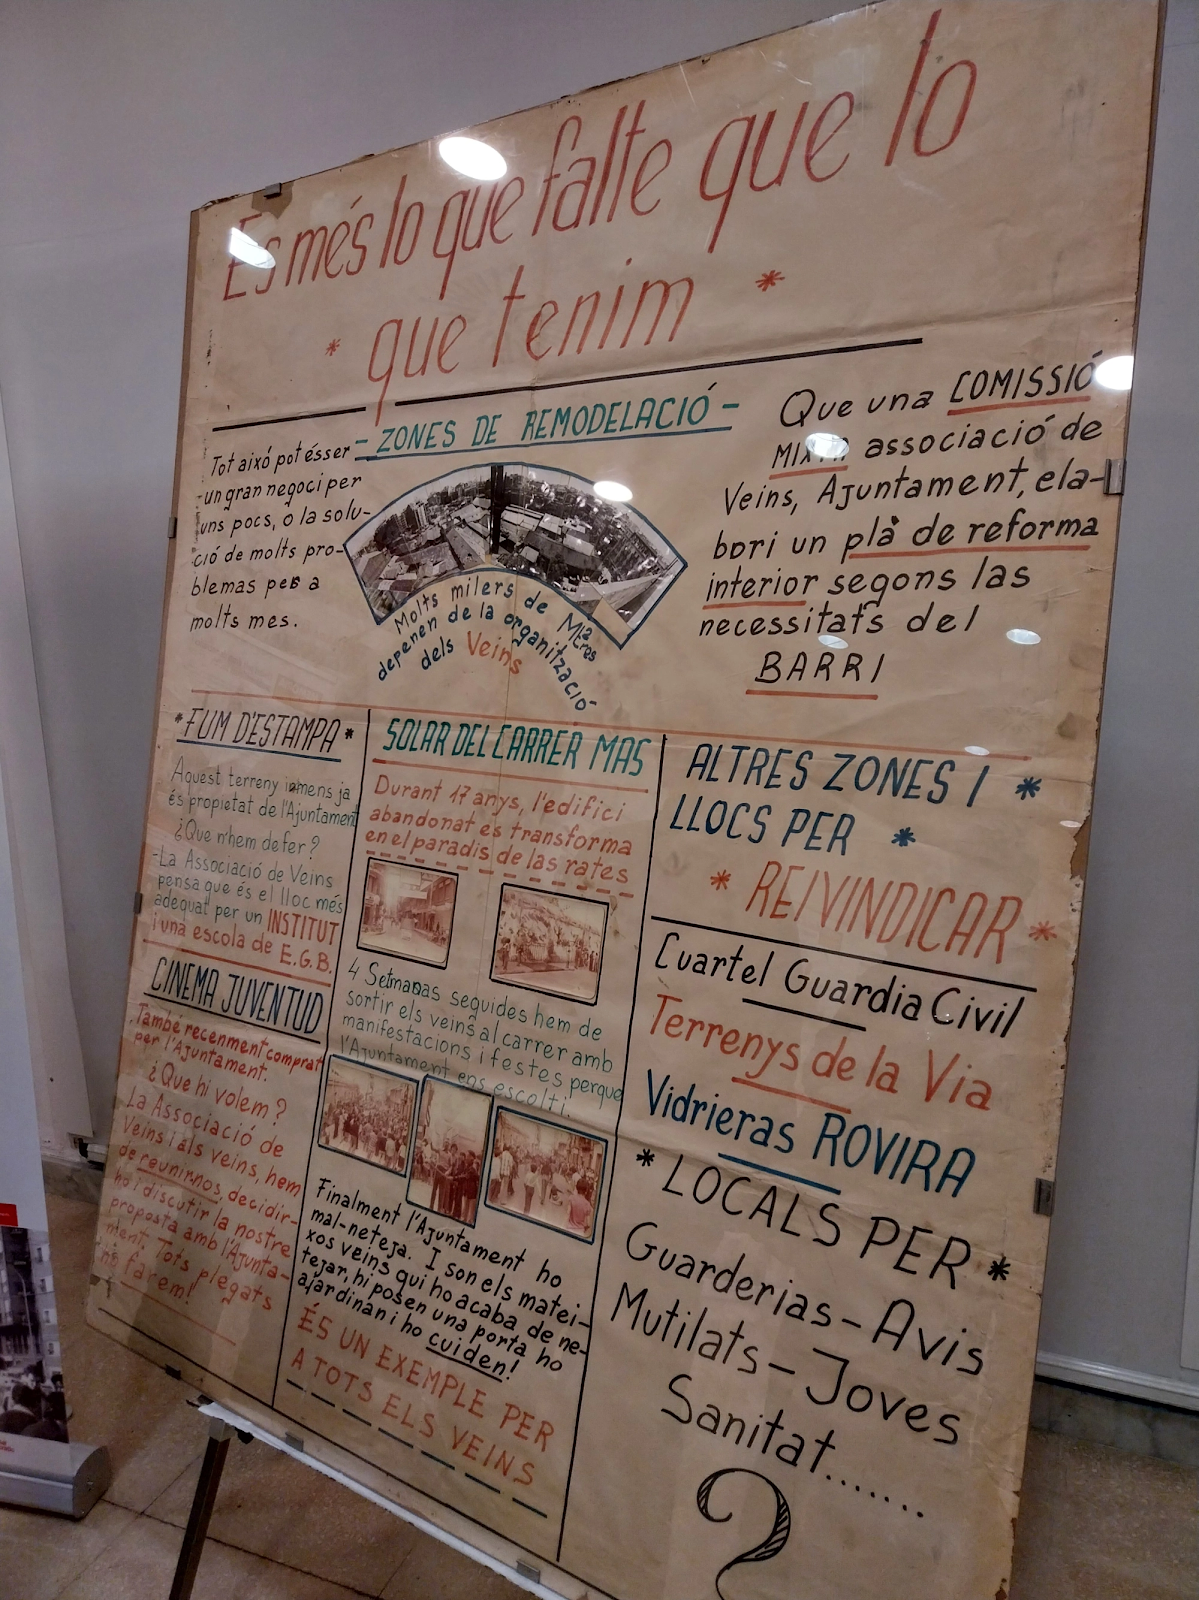 Es més lo que falte que lo
* que tenim *
- ZONES DE REMODELACIÓ -
Tot aixó pot ésser
un gran negoci per
uns pocs, o la solu-
ció de molts pro-
blemas per a
molts mes.
Molts milers de Mtres
depenen de la organització
dels Veins
Que una COMISSIÓ
MIXTA associació de
Veins, Ajuntament, ela-
bori un plà de reforma
interior segons las
necessitats del
BARRI
* FUM D'ESTAMPA *
Aquest terreny inmens ja
és propietat de l'Ajuntament
¿Que n'hem de fer?
-La Associació de Veins
pensa que és el lloc més
adequat per un INSTITUT
i una escola de E.G.B.
CINEMA JUVENTUD
També recenment comprat
per l'Ajuntament.
¿Que hi volem?
La Associació de
Veins i als veins, hem
de reunir-nos, decidir-
ho i discutir la nostre
proposta amb l'Ajunta-
ment. Tots plegats
ho farem!
SOLAR DEL CARRER MAS
Durant 17 anys, l'edifici
abandonat es transforma
en el paradis de las rates
4 Setmanas seguides hem de
sortir els veins al carrer amb
manifestacions i festes perque
l'Ajuntament ens escolti.
Finalment l'Ajuntament ho
mal-neteja. I son els matei-
xos veins qui ho acaba de ne-
tejar, hi posen una porta ho
ajardinan i ho cuiden!
ÉS UN EXEMPLE PER
A TOTS ELS VEINS
ALTRES ZONES I *
LLOCS PER *
* REIVINDICAR *
Cuartel Guardia Civil
Terrenys de la Via
Vidrieras ROVIRA
* LOCALS PER *
Guarderias - Avis
Mutilats - Joves
Sanitat.......
?